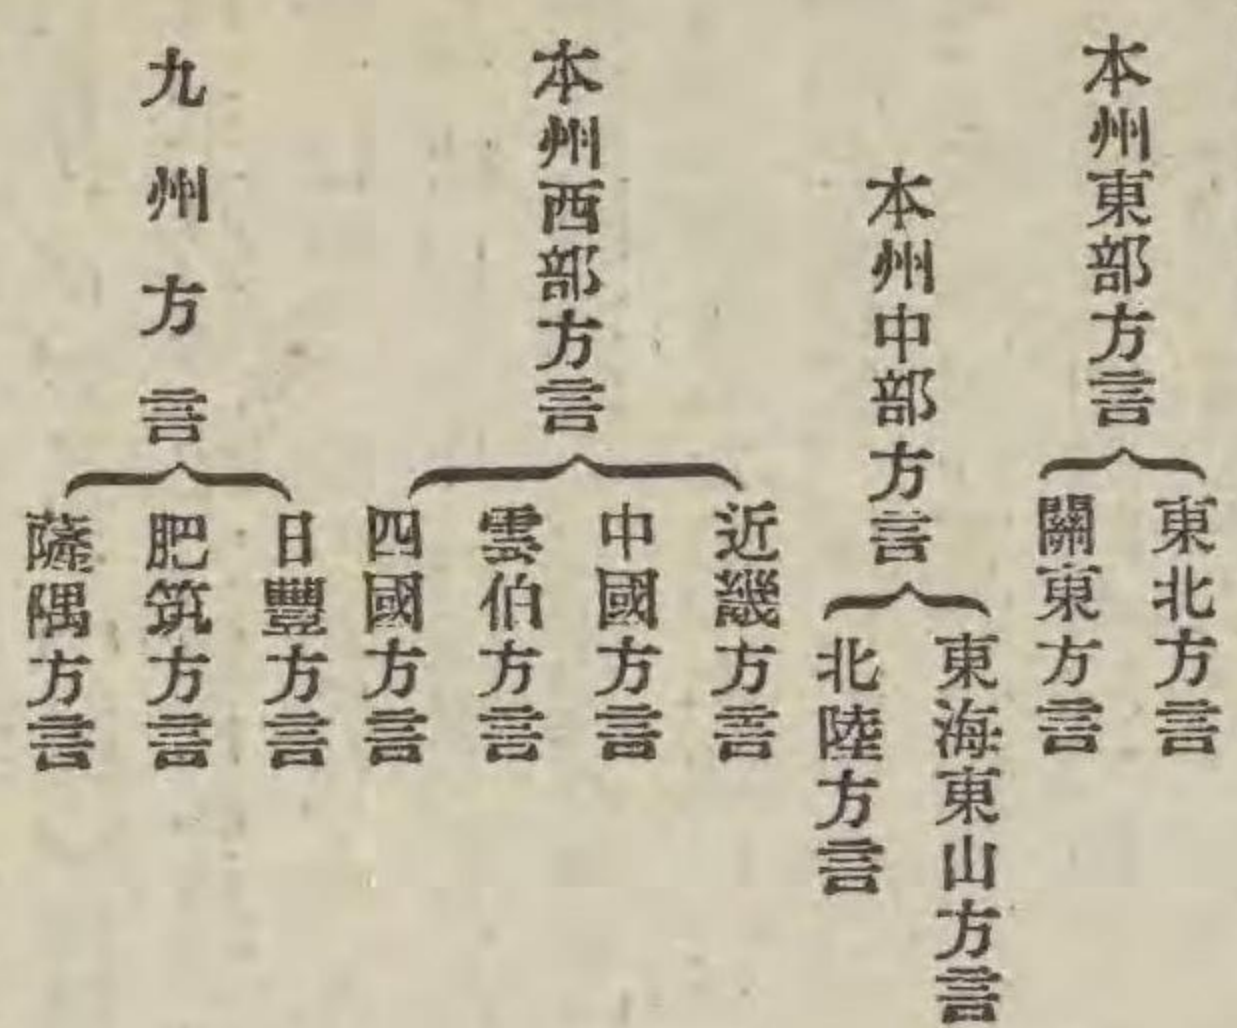 本州東部方言
東北方言
關東方言
本州中部方言
東海東山方言
北陸方言
本州西部方言
近畿方言
中國方言
雲伯方言
四國方言
九州方言
日豐方言
肥筑方言
薩隅方言